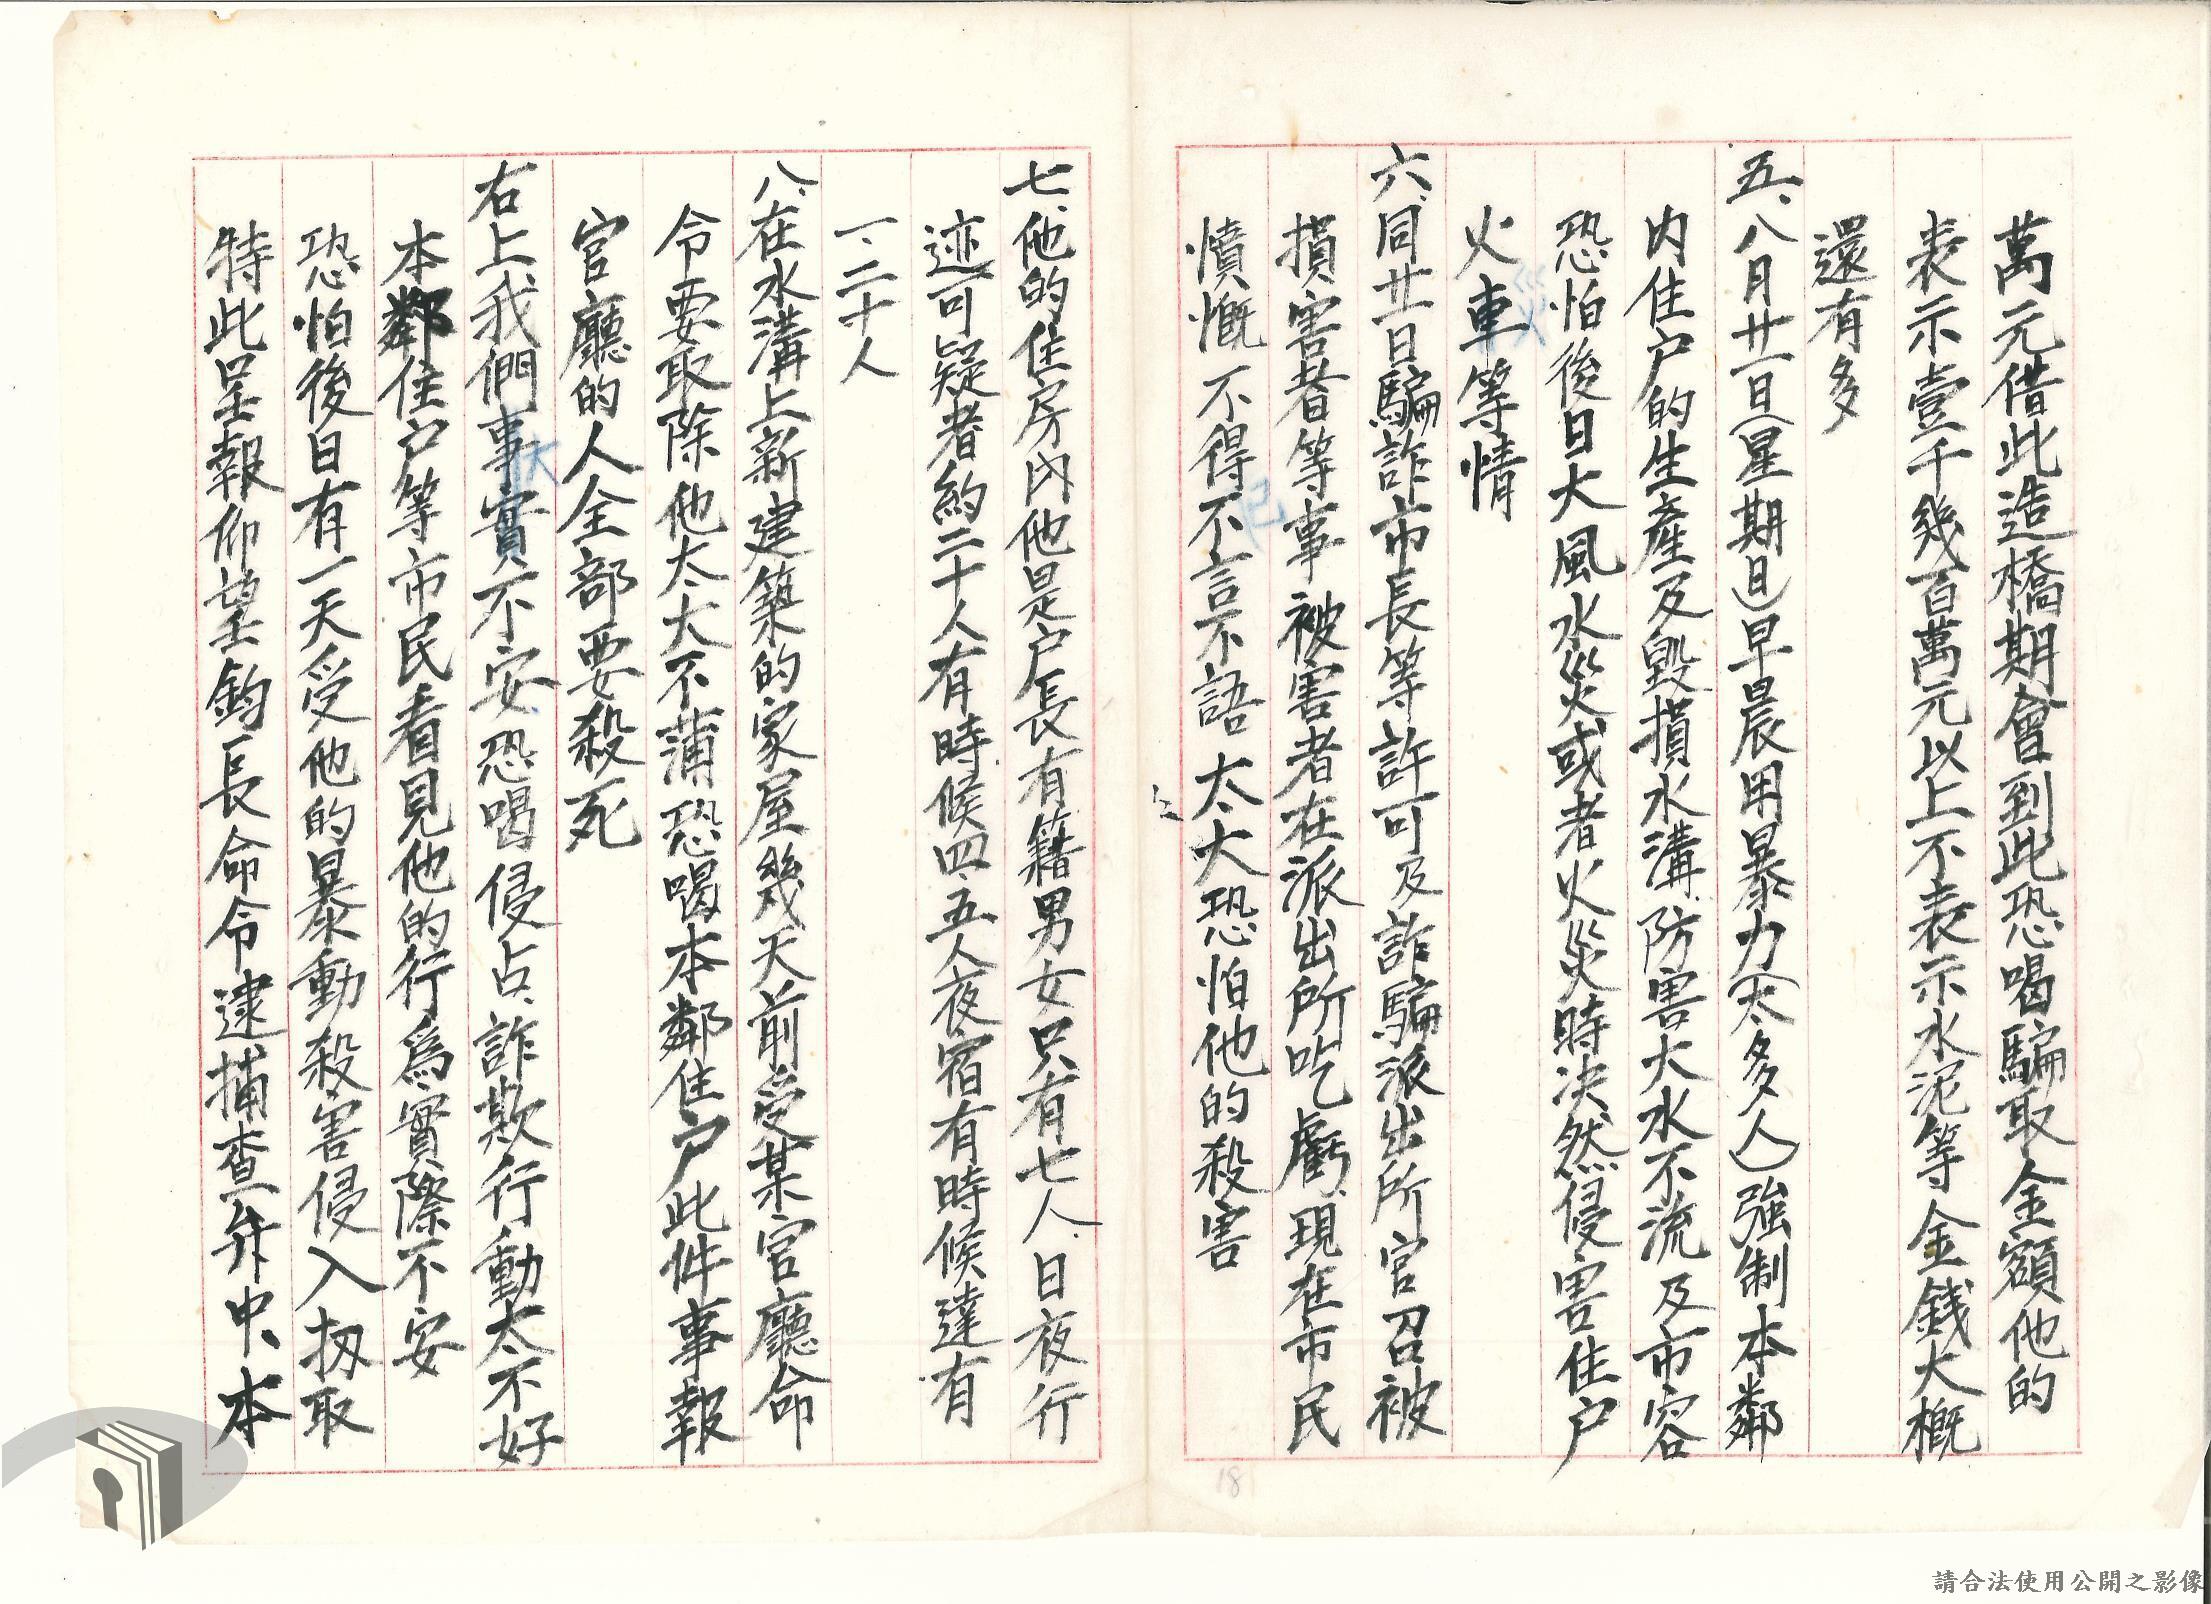 萬元借此造橋期會到此恐喝騙取金額他的
表示壹千幾百萬元以上不表示水泥等金錢大概
還有多
五、八月廿一日(星期日)早晨用暴力(太多人)強制本鄰
内住户的生產及毀損水溝、防害大水不流及市容
恐怕後日大風水災或者火災時决然侵害住户
火車等情
災
六、同廿一日騙詐市長等許可及詐騙派出所官召被
損害者等事被害者在派出所吃虧、現在市民
憤慨不得不言不語太大恐怕他的殺害
已
七、他的住房内他是户長有籍男女只有七人、日夜行
迹可疑者約二十人有時候四、五人夜宿有時候達有
一、二十人
八、在水溝上新建築的家屋幾天前受某官廳命
令要取除他太大不蒲恐喝本鄰住户此件事報
官廳的人全部要殺死
右上我們事實不安恐喝侵占、詐欺行動太不好
状
本鄰住户等市民看見他的行為實際不安
恐怕後日有一天受他的暴動殺害侵入扨取
特此呈報仰望鈞長命令逮捕查弁中、本
18
請合法使用公開之影像